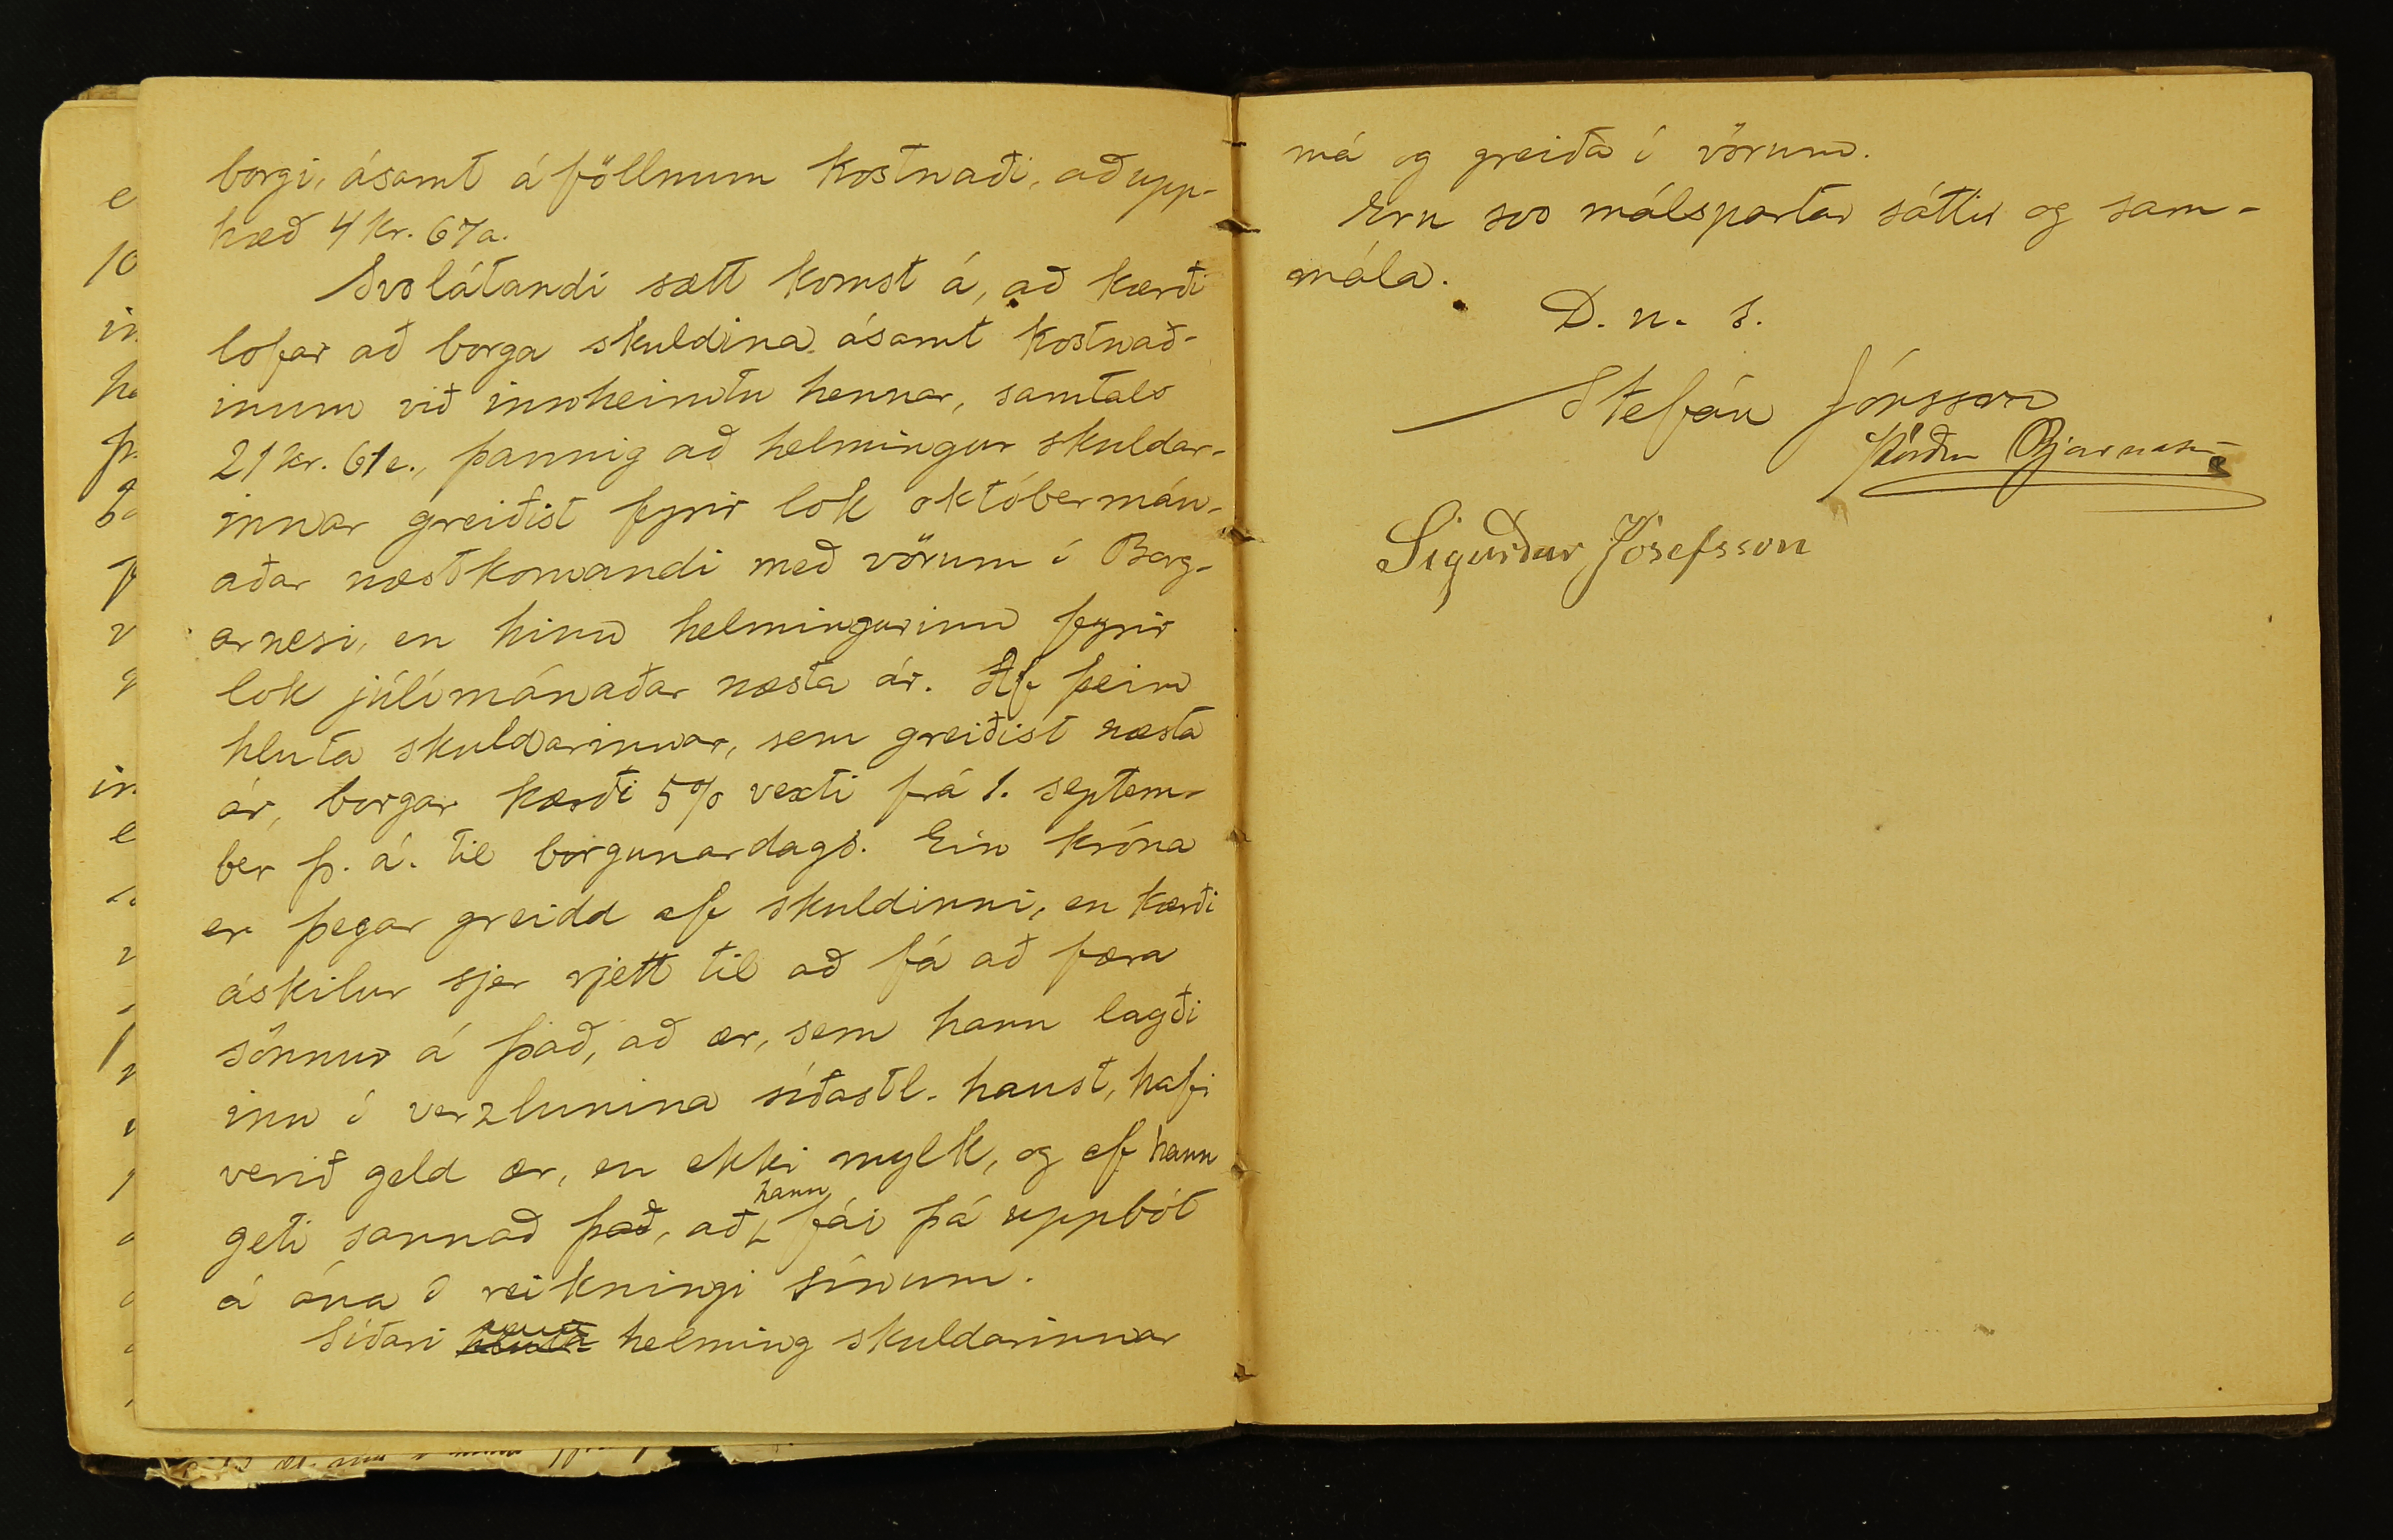 borgi, ásamt áföllnum kostnaði, að upp-
hæð 4 kr. 67a.
Svolátandi sætt komst á, að kærði
lofar að borga skuldina ásamt kostnað-
inum við innheimtu hennar, samtals
21 kr. 61a., þannig að helmingur skuldar-
innar greiðist fyrir lok októbermán-
aðar næstkomandi með vörum í Borg-
arnesi, en hinn helmingurinn fyrir
lok júlímánaðar næsta ár. Af þeim
hluta skuldarinnar, sem greiðist næsta
ár, borgar kærði 5% vexti frá 1. septem-
ber þ. á. til borgunardags. Ein króna
er þegar greidd af skuldinni, en kærði
áskilur sjer rjett til að fá að færa
sönnur á það, að ær, sem hann lagði
inn í verzlunina síðastl. haust, hafi
verið geld ær, en ekki mylk, og ef hann
geti sannað það, að hann fái þá uppbót
á ána í reikningi sínum.
Síðari hluta helming skuldarinnar
má og greiða í vörum.
Eru svo málspartar sáttir og sam-
mála.
D. u. s.
Stefán Jónsson
Þórður Bjarnason
Sigurður Jósefsson